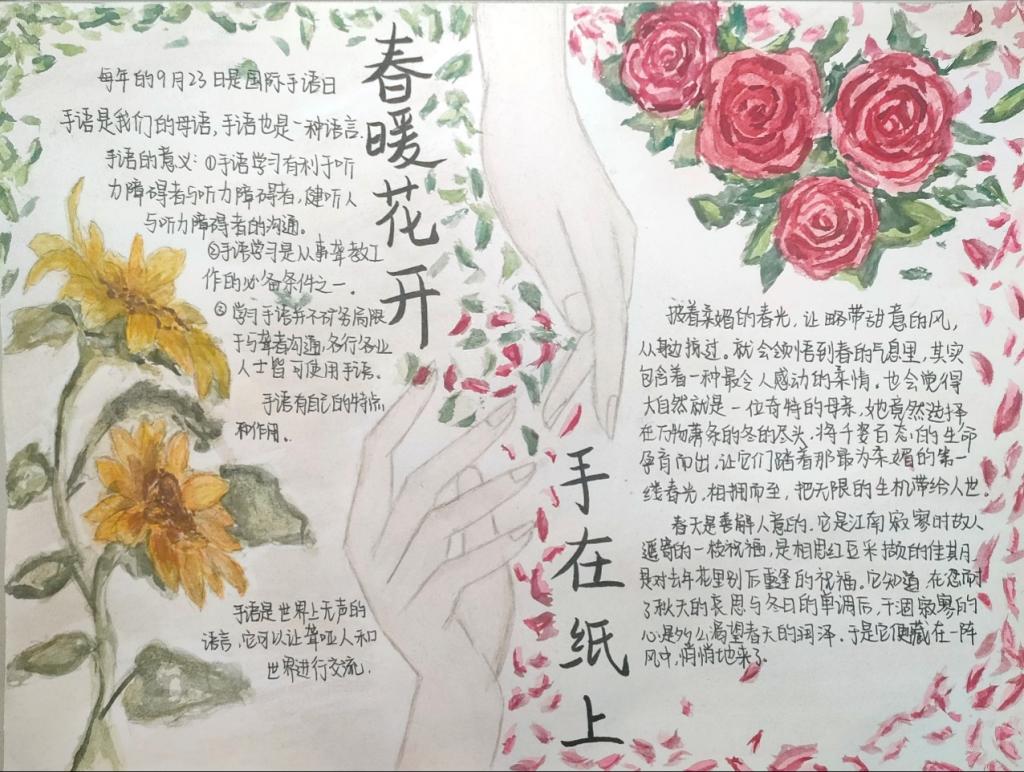 春暖花开
每年的9月23日是国际手语日
手语是我们的母语,手语也是一种语言.
手语的意义:①手语学习有利于听
力障碍者与听力障碍者,健听人
与听力障碍者的沟通。
②手语学习是从事聋教工
作的必备条件之一。
③学习手语并不对务局限
于与聋者沟通,各行各业
人士皆可使用手语。
手语有自己的特点
和作用。
手语是世界上无声的
语言,它可以让聋哑人和
世界进行交流.
手在纸上
披着柔媚的春光,让略带动意的风,
从身边掠过。就会领悟到春的气息里,其实
包含着一种最令人感动的亲情。也会觉得
大自然就是一位奇特的母亲,她竟然选择
在万物萧条的冬的尽头,将千姿百态的生命
孕育而出,让它们踏着那最为柔媚的第一
缕春光,相拥而至,把无限的生机带给人世。
春天是善解人意的,它是江南寂寥时故人
遥寄的一枝祝福,是相思红豆采撷的佳期,
是对去年花里别后重逢的祝福。它知道,在忍耐
了秋天的哀思与冬日的单调后,干涸寂寥的
心是多么渴望春天的润泽.于是它便藏在一阵
风中,悄悄地来了.